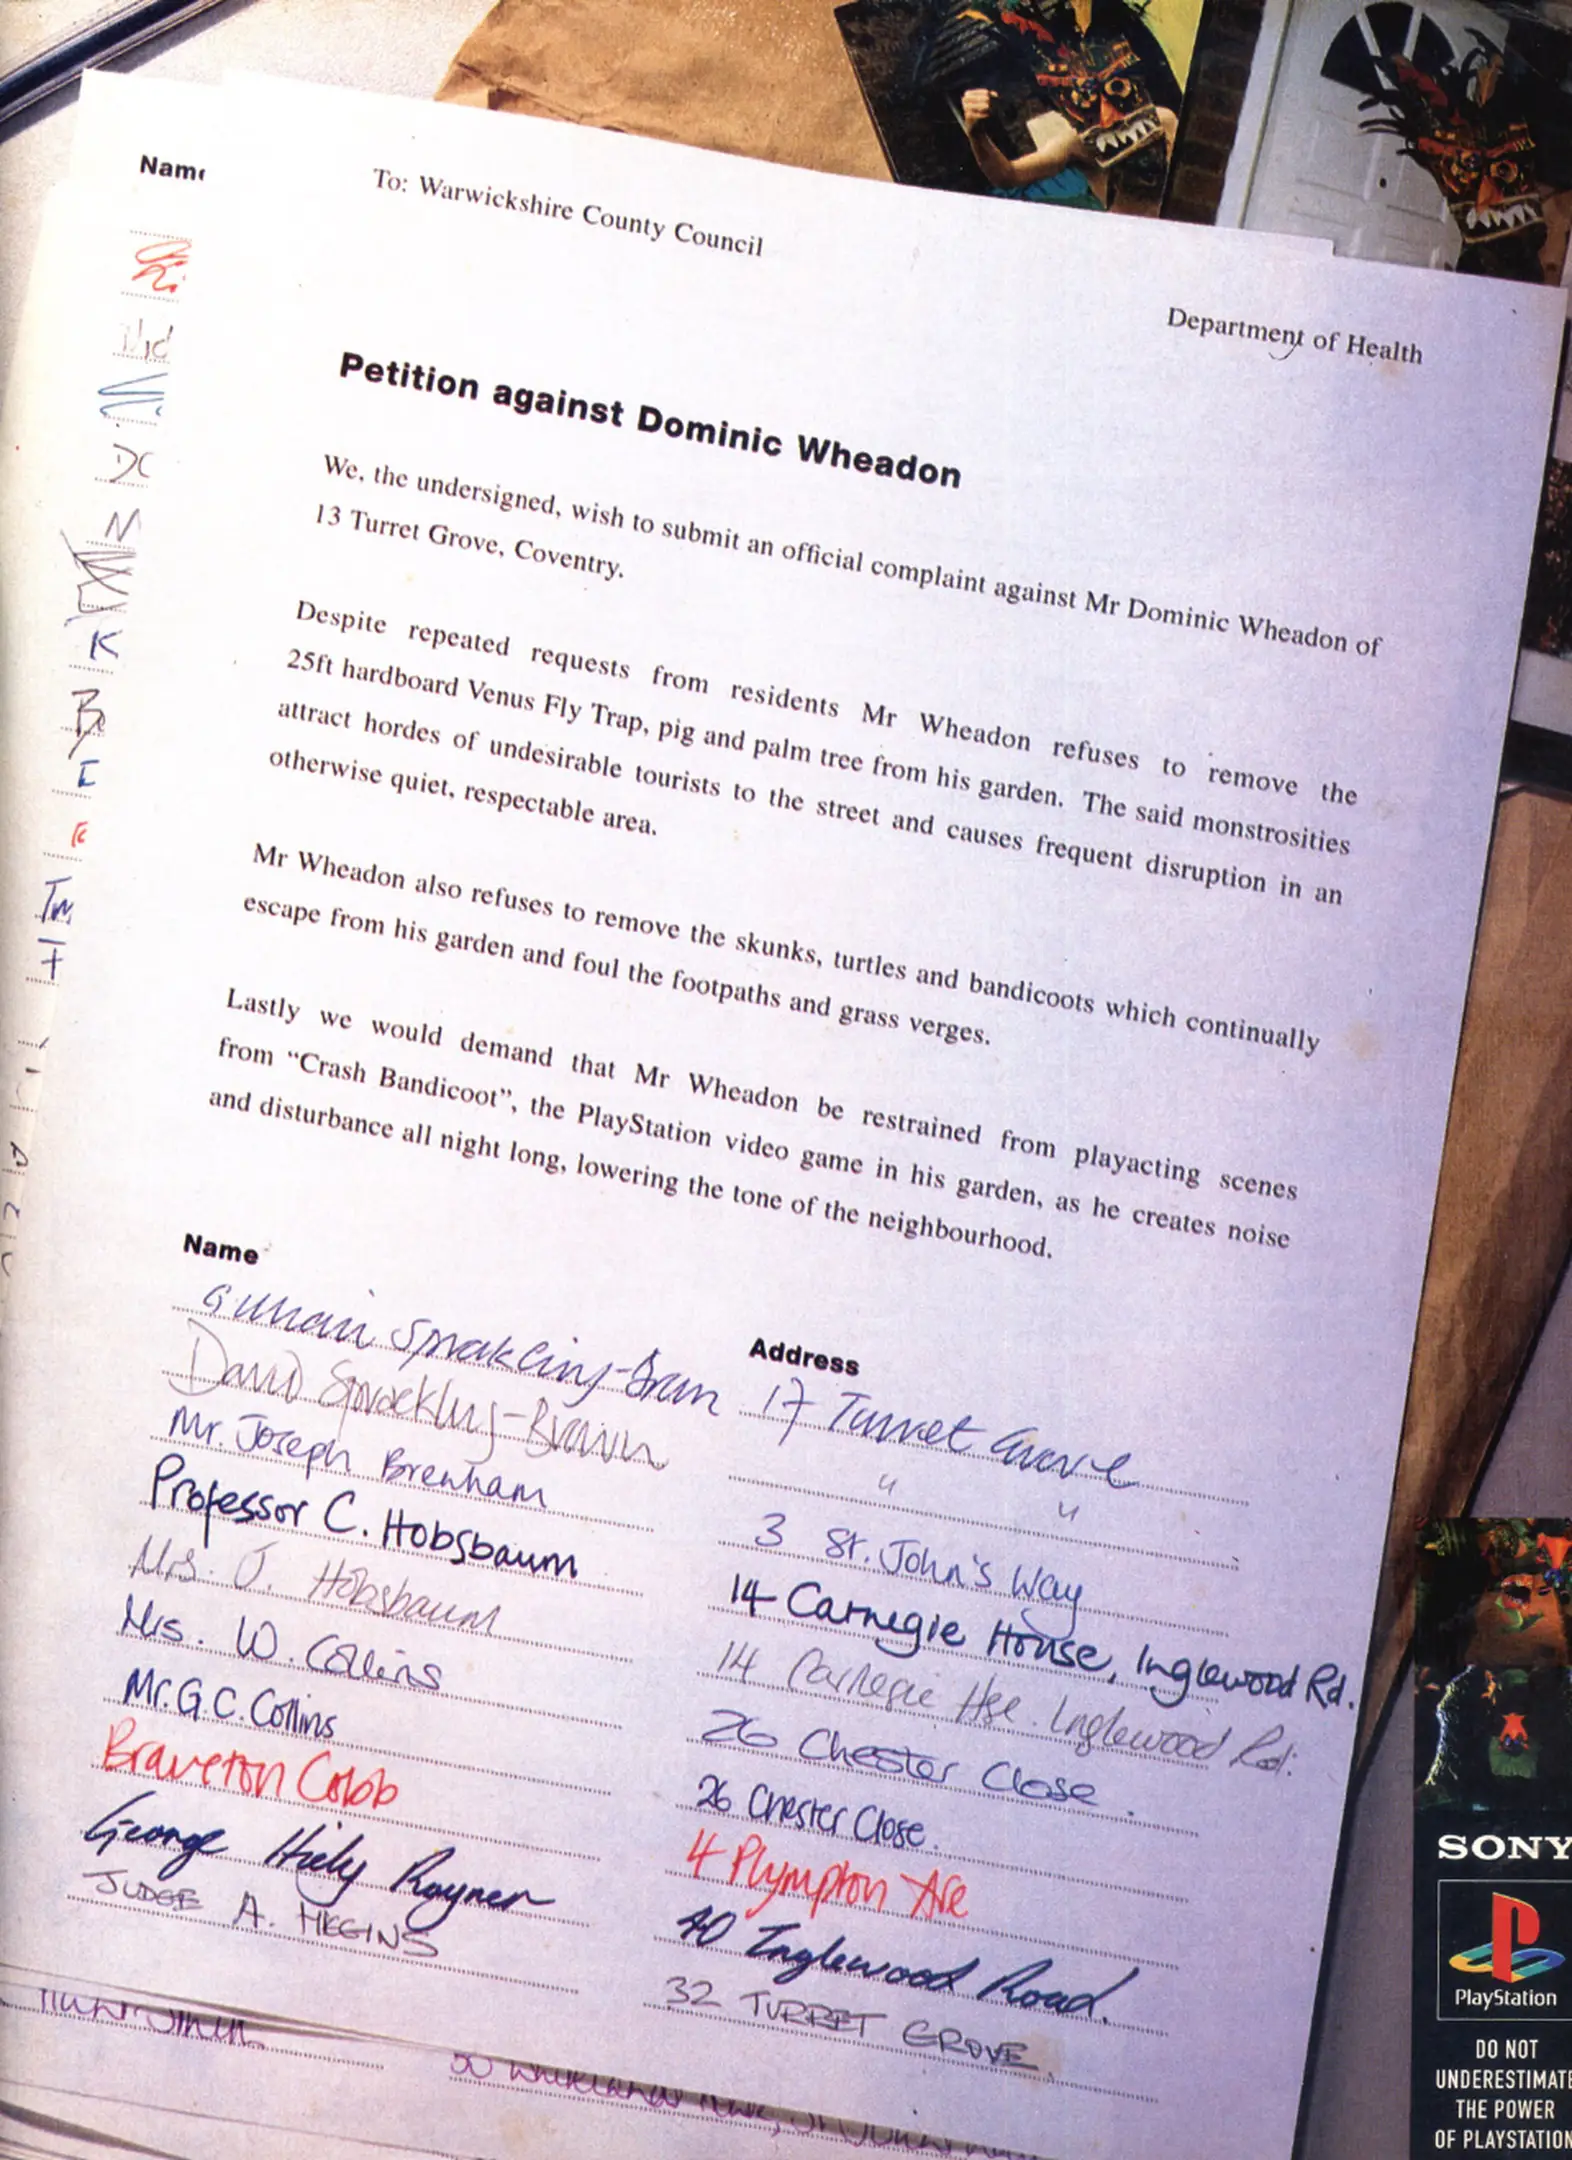 To: Warwickshire County Council
Department of Health
Petition against Dominic Wheadon
We, the undersigned, wish to submit an official complaint against Mr Dominic Wheadon of
13 Turret Grove, Coventry.
Despite repeated requests from residents Mr Wheadon refuses to remove the
25ft hardboard Venus Fly Trap, pig and palm tree from his garden. The said monstrosities
attract hordes of undesirable tourists to the street and causes frequent disruption in an
otherwise quiet, respectable area.
Mr Wheadon also refuses to remove the skunks, turtles and bandicoots which continually
escape from his garden and foul the footpaths and grass verges.
Lastly we would demand that Mr Wheadon be restrained from playacting scenes
from “Crash Bandicoot”, the PlayStation video game in his garden, as he creates noise
and disturbance all night long, lowering the tone of the neighbourhood.
Name Address
Sprakling-Bran 17 Turret Grove
David Sprackling-Brown " "
Mr. Joseph Brenham 3 St. John's Way
Professor C. Hobsbaum 14 Carnegie House, Inglewood Rd.
Mrs. J. Hobsbaum 14 Carnegie Hse. Inglewood Rd.
Mrs. W. Collins 26 Chester Close.
Mr. G. C. Collins 26 Chester Close.
Braveton Cobb 4 Plympton Ave
George Rayner 40 Inglewood Road.
JUDGE A. HIGGINS 32 TURRET GROVE.
SONY
PlayStation
DO NOT
UNDERESTIMATE
THE POWER
OF PLAYSTATION